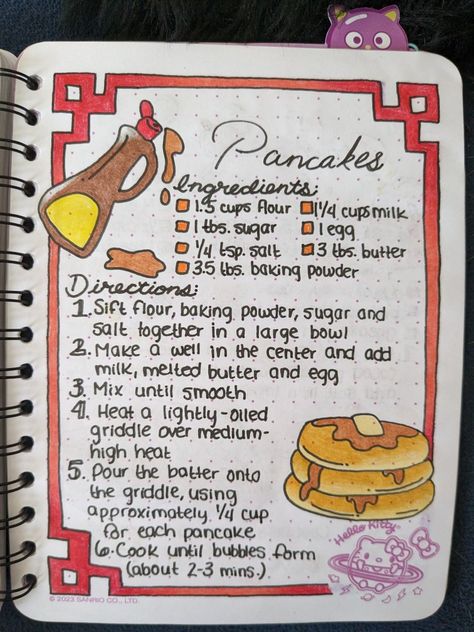 Pancakes
Ingredients:
1.5 cups flour 1 1/4 cups milk
1 tbs. sugar 1 egg
1/4 tsp. salt 3 tbs. butter
3.5 tbs. baking powder
Directions:
1. Sift flour, baking powder, sugar and
salt together in a large bowl
2. Make a well in the center and add
milk, melted butter and egg
3. Mix until smooth
4. Heat a lightly-oiled
griddle over medium-
high heat
5. Pour the batter onto
the griddle, using
approximately 1/4 cup
for each pancake
6. Cook until bubbles form
(about 2-3 mins.)
Hello Kitty
© 2023 SANRIO CO., LTD.